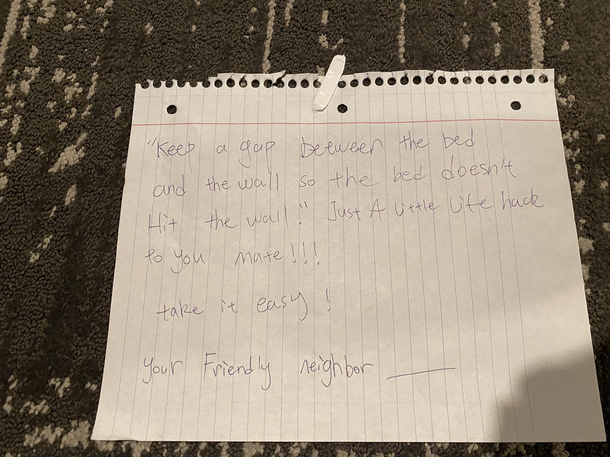 "Keep a gap between the bed
and the wall so the bed doesn't
Hit the wall." Just A Little Life hack
to you mate!!!
take it easy!
your Friendly neighbor